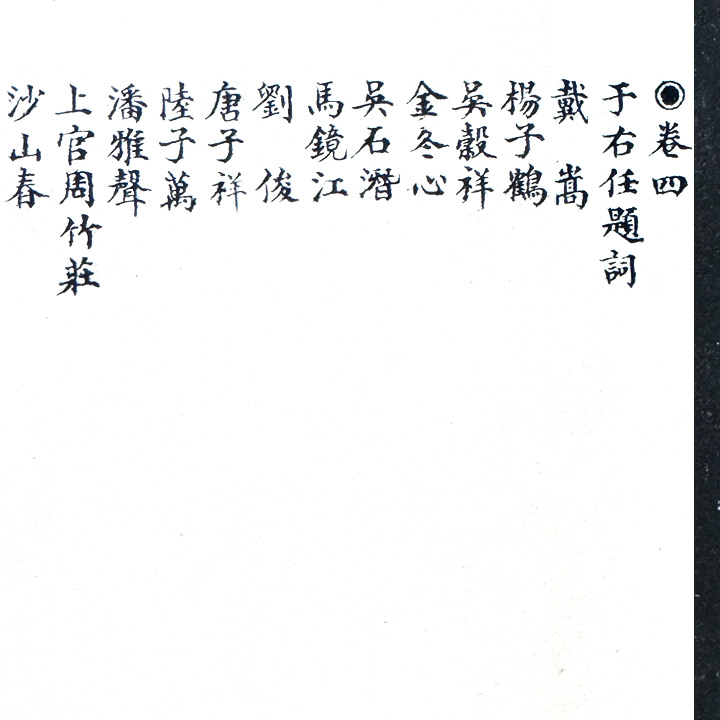 ◉卷四
于右任題詞
戴　嵩
楊子鶴
吳穀祥
金冬心
吳石潛
馬鏡江
劉　俊
唐子祥
陸子萬
潘雅聲
上官周竹莊
沙山春